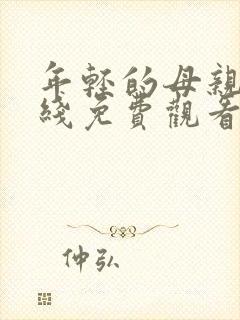 年轻的母親
綫免費觀看
仲弘